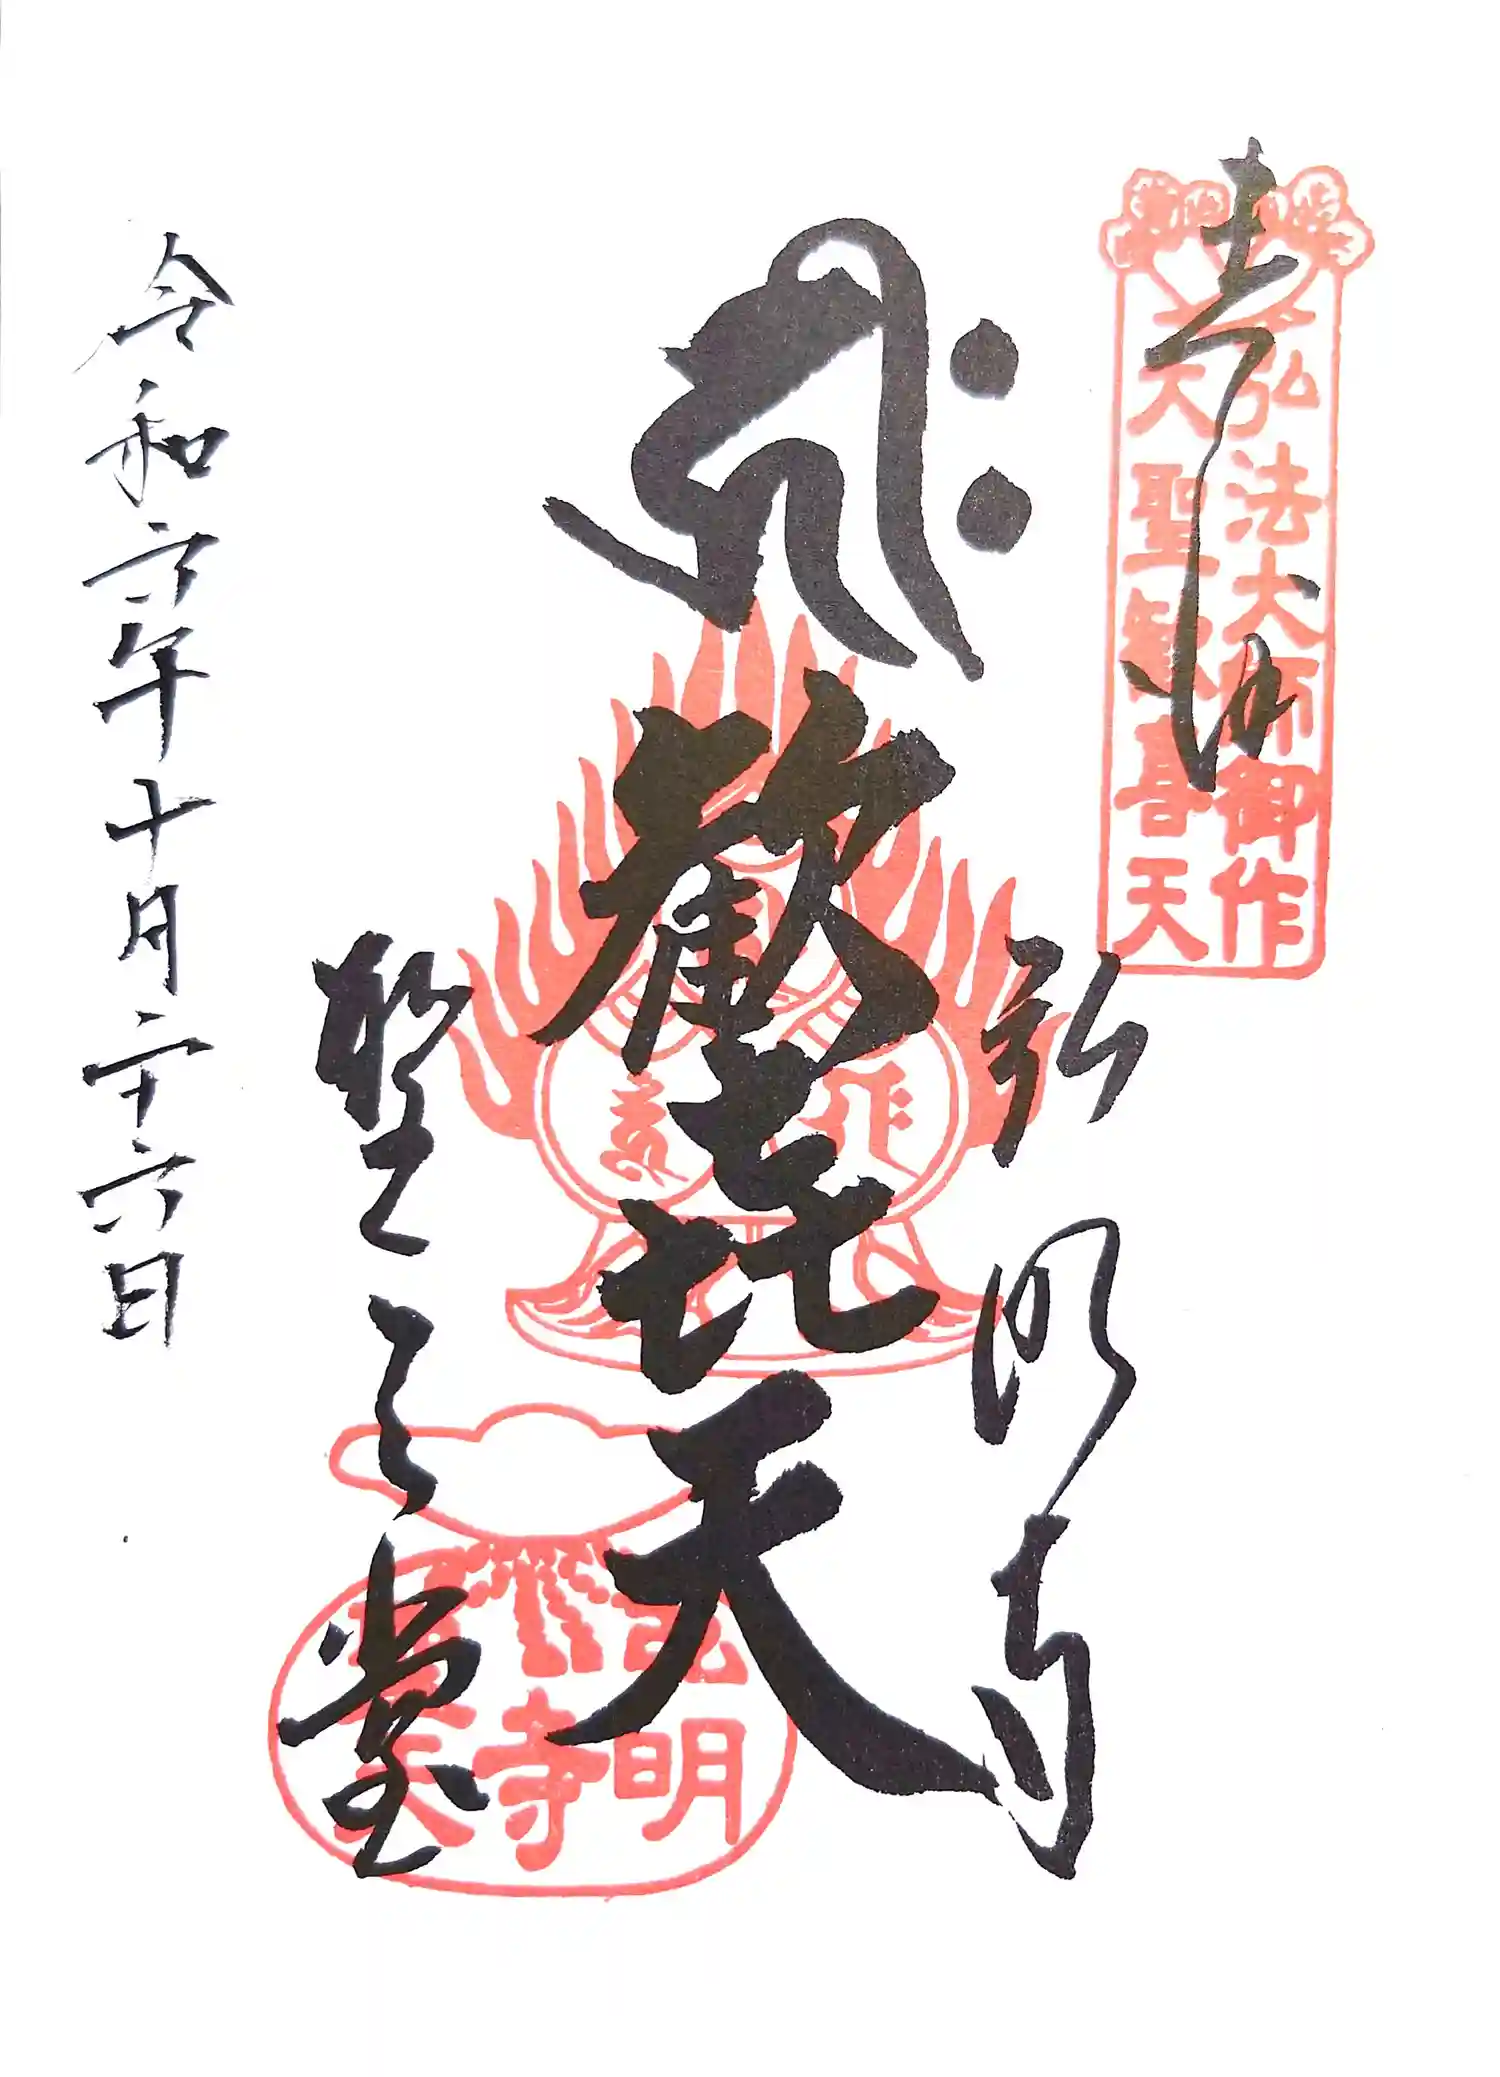 奉拝
弘法大師御作
大聖歓喜天
弘明寺
歓喜天
聖天堂
弘明寺
聖天
令和六年十月二十六日